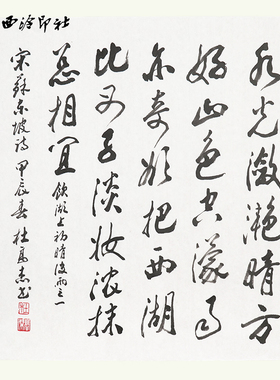 西泠印社
水光潋滟晴方
好山色空濛雨
亦奇欲把西湖
比西子淡妆浓抹
总相宜 饮湖上初晴後雨之一
宋蘇东坡诗 甲辰春 杜高杰书